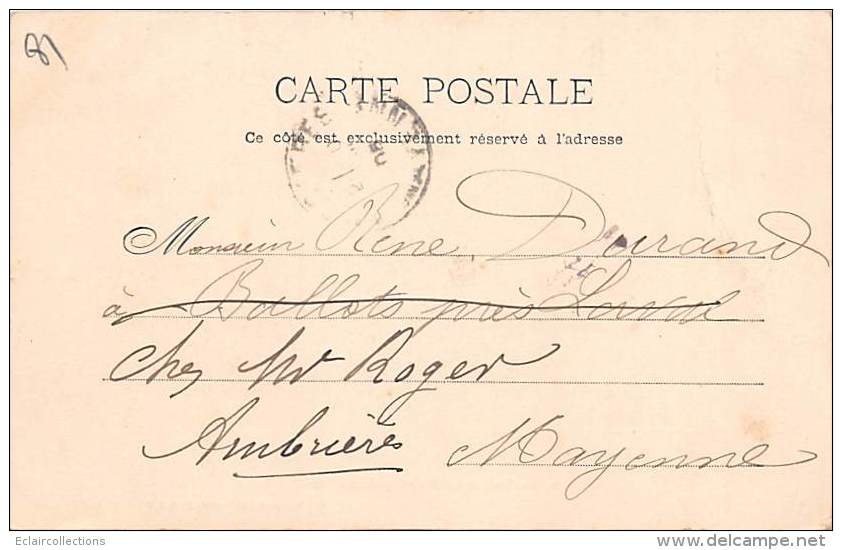 81
CARTE POSTALE
Ce côté est exclusivement réservé à l'adresse
Monsieur Rene Durand
à Ballots près Laval
Chez Mr Roger
Ambrières Mayenne
Eclaircollections
www.delcampe.net